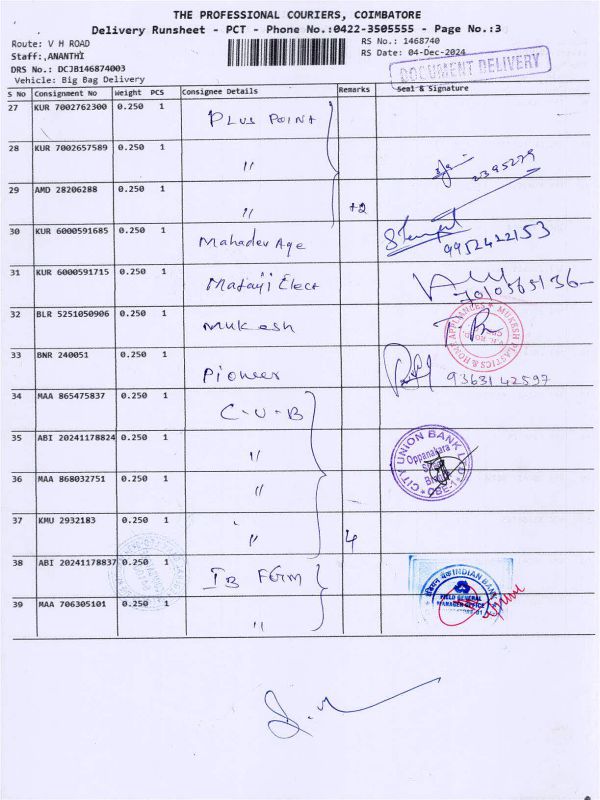 THE PROFESSIONAL COURIERS, COIMBATORE
Delivery Runsheet - PCT - Phone No.:0422-3505555 - Page No.:3
Route: V H ROAD
RS No.: 1468740
Staff:,ANANTHI
RS Date: 04-Dec-2024
DRS No.: DCJB146874003
Vehicle: Big Bag Delivery
DOCUMENT DELIVERY
S No Consignment No Weight PCS Consignee Details Remarks Seal & Signature
27 KUR 7002762300 0.250 1 PLUS POINT
28 KUR 7002657589 0.250 1 "
2395279
29 AMD 28206288 0.250 1 " +2
30 KUR 6000591685 0.250 1 Mahadev Age 9952422153
31 KUR 6000591715 0.250 1 Elect
32 BLR 5251050906 0.250 1 Mukesh
MUKESH PLASTICS & HOME APPLIANCES
33 BNR 240051 0.250 1 Pioneer 9363142597
34 MAA 865475837 0.250 1 C-U-B
35 ABI 20241178824 0.250 1 "
CITY UNION BANK LTD
Oppanakara
36 MAA 868032751 0.250 1 "
37 KMU 2932183 0.250 1 " 4
38 ABI 20241178837 0.250 1 IB FGM
INDIAN BANK
FIELD GENERAL
MANAGER OFFICE
39 MAA 706305101 0.250 1 "